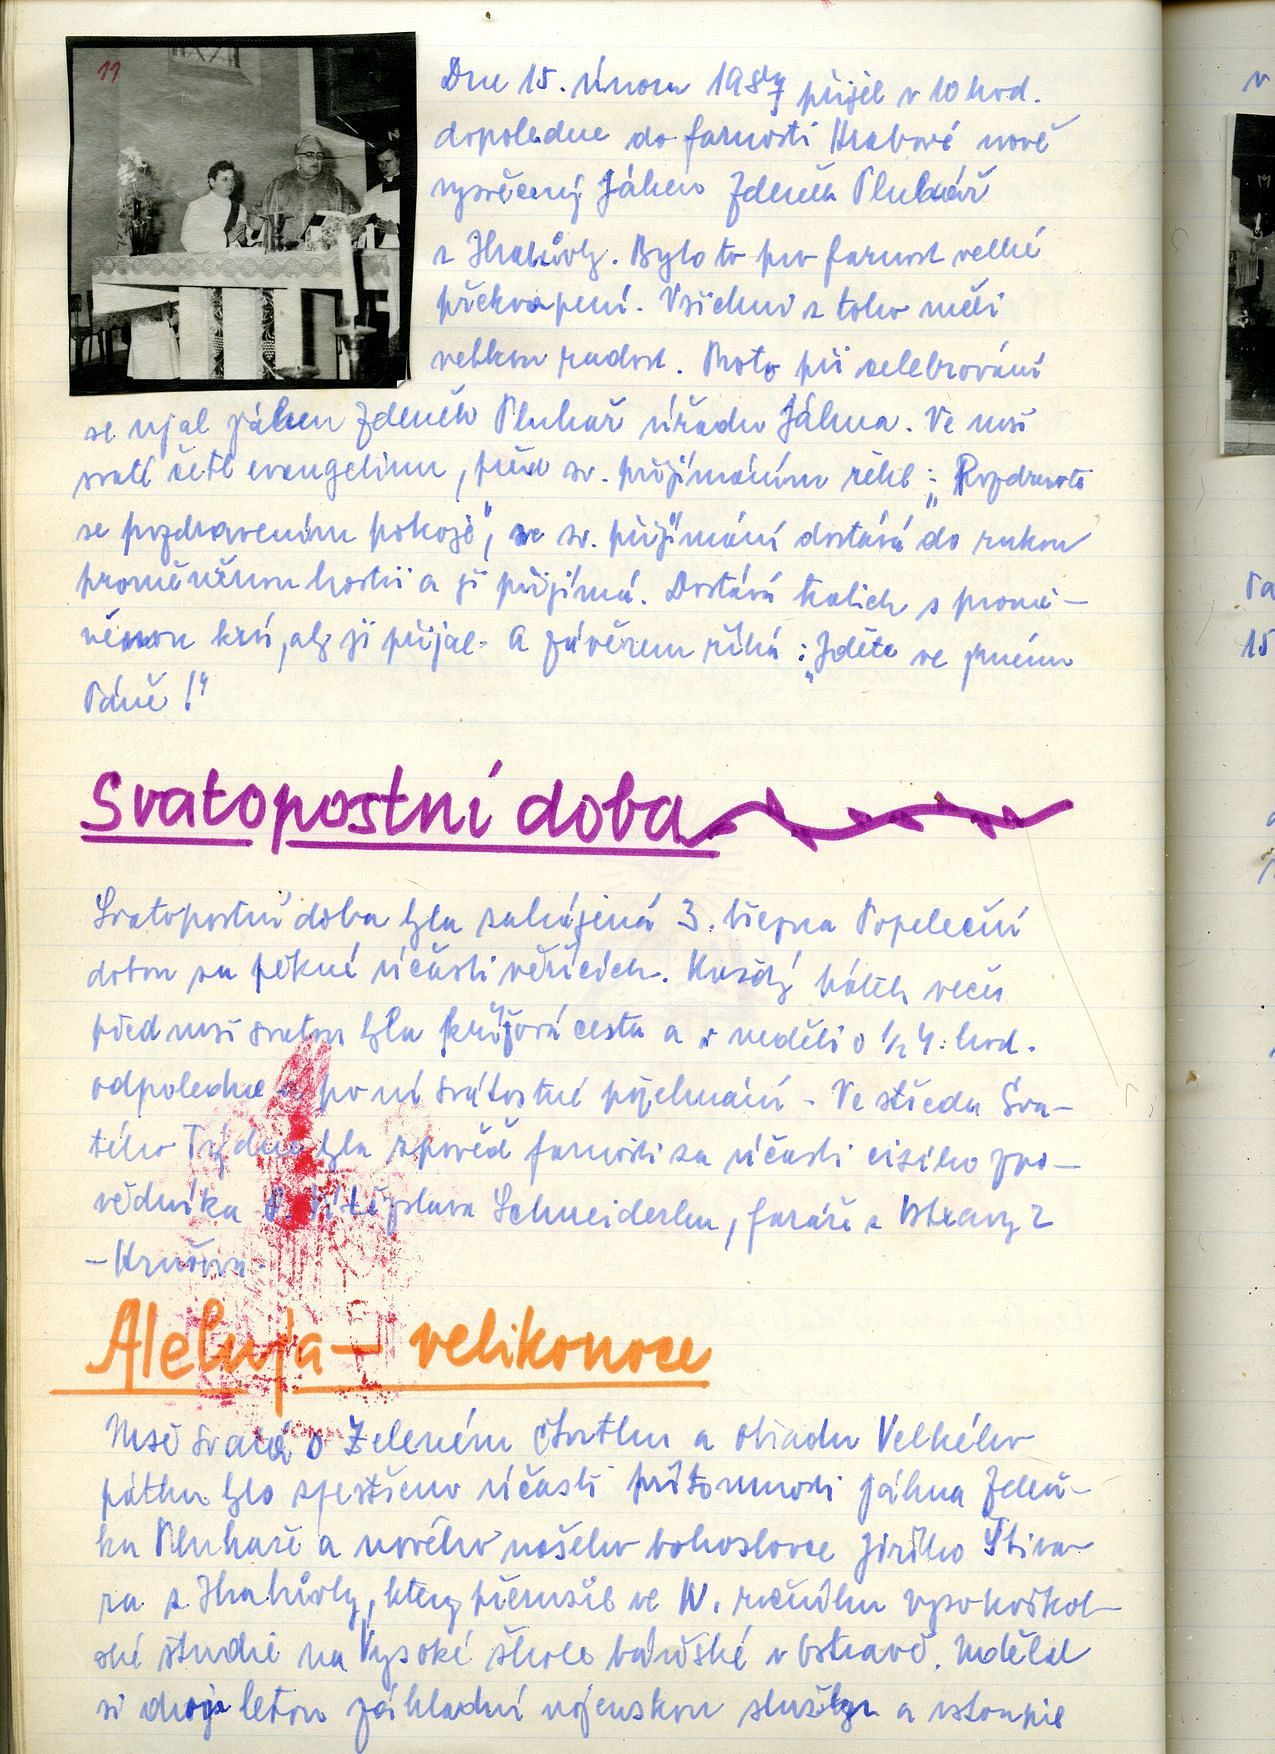 11
Dne 15. února 1987 přijel v 10 hod.
dopoledne do farnosti Hrabové nově
vysvěcený Jáhen Zdeněk Pluhař
z Hrabůvky. Bylo to pro farnost velké
překvapení. Všichni z toho měli
velikou radost. Proto při celebrování
se ujal jáhen Zdeněk Pluhař úřadu Jáhna. Ve mši
svaté četl evangelium, před sv. přijímáním řekl: „Pozdravte
se pozdravením pokoje", ve sv. přijímání dostává do rukou
proměněnou hostii a ji přijímá. Dostává kalich s promě-
něnou krví, aby ji přijal. A závěrem říká: „Jděte ve jménu
Páně!"
Svatopostní doba
Svatopostní doba byla zahájená 3. března Popeleční
dobou za pěkné účasti věřících. Každý pátek večer
před mší svatou byla křížová cesta a v neděli o 1/2 4. hod.
odpoledne a po ní svátostné požehnání - Ve středu Sva-
tého Týdne byla zpověď farnosti za účasti cizího zpo-
vědníka P. Vítězslava Schneiderka, faráře z Ostravy 2
-Kunčic.
Aleluja - velikonoce
Mše svatá o Zeleném čtvrtku a obřadu Velkého
pátku bylo zpestřeno účastí přítomnosti jáhna Zdeň-
ka Pluhaře a nového našeho bohoslovce Jiřího Stiva-
ra z Hrabůvky, který přerušil ve IV. ročníku vysokoškol-
ské studie na Vysoké škole báňské v Ostravě. Udělal
si dvoje letou základní vojenskou službu a vstoupil